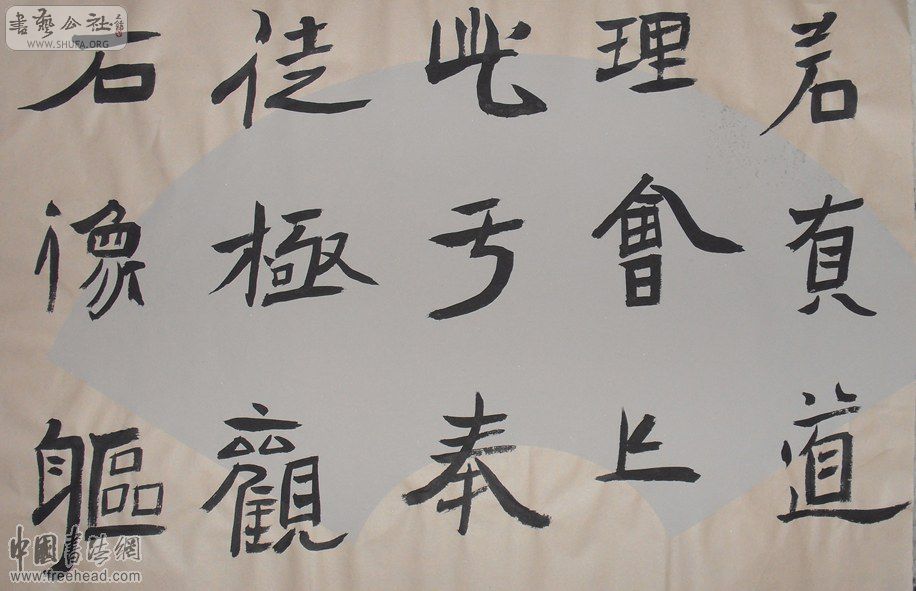 若有道
理會上
此亏奉
徒極觀
石像軀
書藝公社
WWW.SHUFA.ORG
中國書法網
www.freehead.com